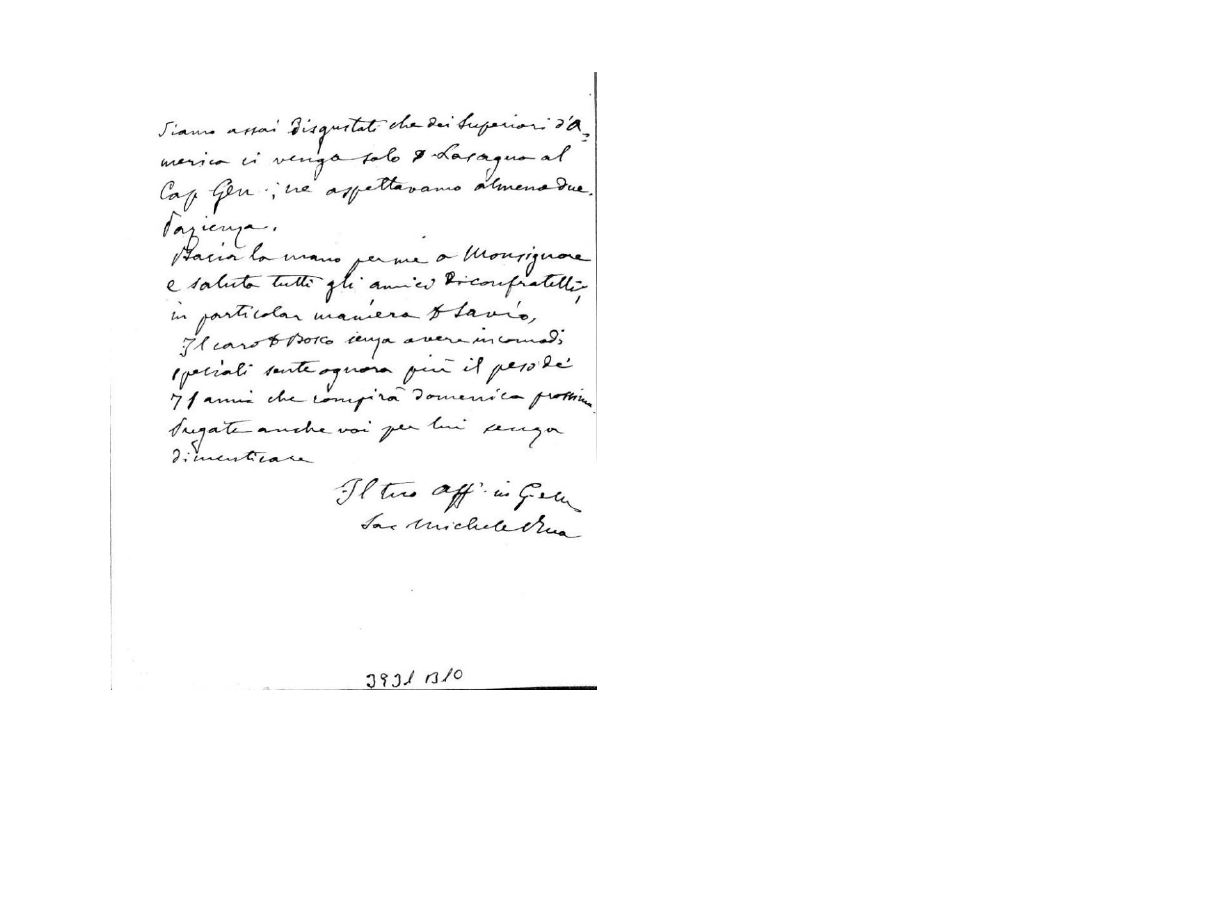 Siamo assai disgustati che dei Superiori d'A=
merica ci venga solo D Lasagna al
Cap Gen.; ne aspettavamo almeno due.
Pazienza.
Bacia la mano per me a Monsignore
e saluta tutti gli amici e i confratelli,
in particolar maniera D Savio,
Il caro D Bosco senza avere incomodi
speciali sente ognora più il peso de'
71 anni che compirà domenica prossima
Pregate anche voi per lui senza
dimenticare
Il tuo Aff. in G e M
Sac Michele Rua
3931 B10